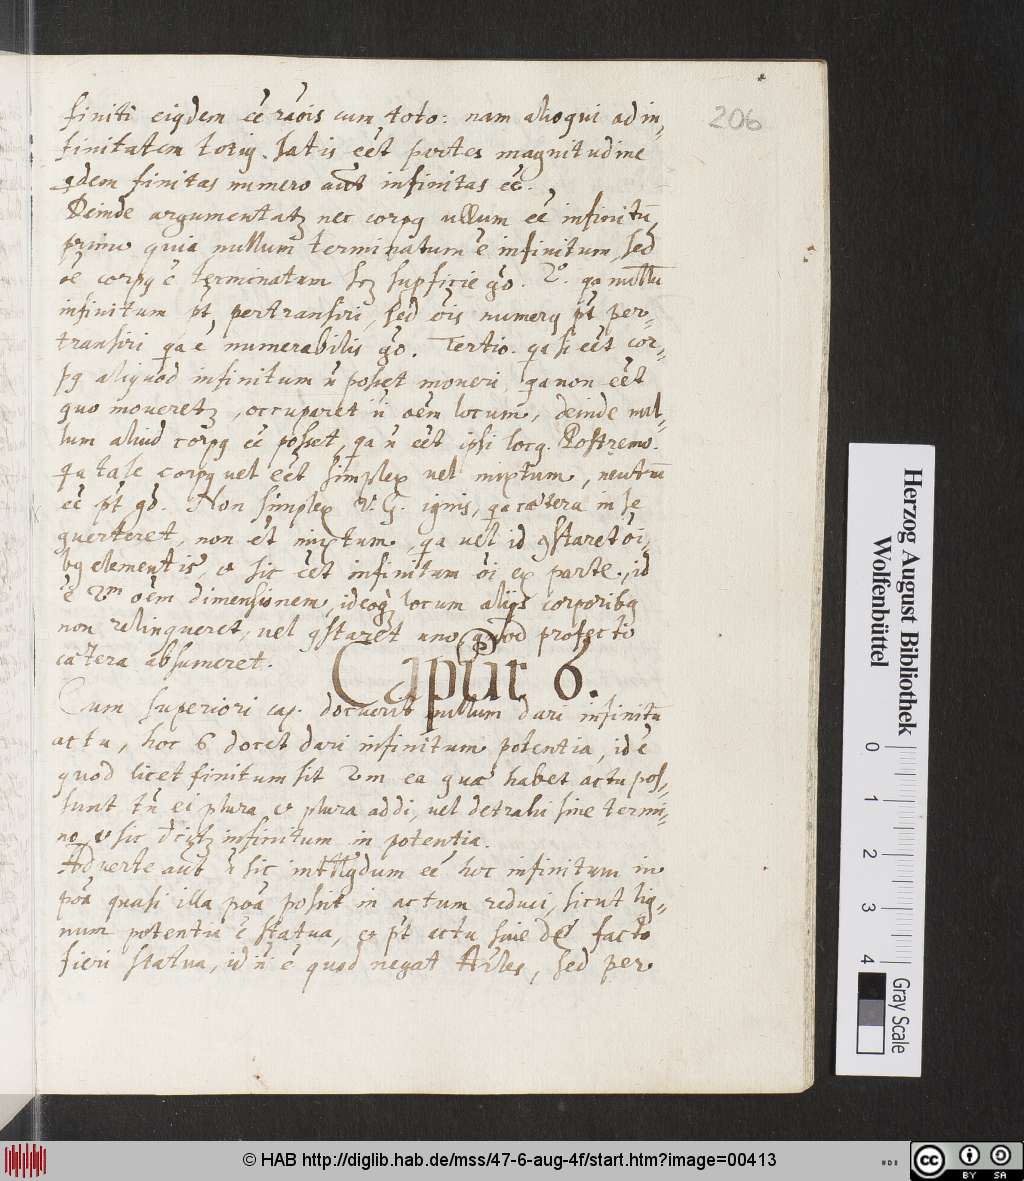 206
finiti eiꝰdem eē rāois cum toto: nam alioqui ad in-
finitatem totiꝰ. Satis eēt partes magnitudine
qdem finitas numero aūt infinitas eē.
Deinde argumentatꝛ nec corpꝰ ullum eē infinitū,
primo quia nullum terminatum ē infinitum, sed
oē corpꝰ ē terminatum scꝫ supficie gō. 2º. qa nullū
infinitum pt̄ pertransiri, sed oīs numerꝰ pt̄ per-
transiri qa ē numerabilis gō. Tertio. qa si eēt cor-
pꝰ aliquod infinitum n̄ posset moveri, qa non eēt
quo moveretꝛ, occuparet n̄ oēm locum, deinde nul-
lum aliud corpꝰ eē posset, qa n̄ eēt ipsi locꝰ. Postremo.
qa tale corpꝰ vel eēt simplex vel mixtum, neutrū
eē pt̄ gō. Non simplex v. G. ignis, qa cætera in se
verteret, non eēt mixtum, qa vel id ꝯstaret oī-
bꝰ elementis et sic eēt infinitum oī ex parte, id
ē 2m oēm dimensionem, ideoqꝫ locum aliis corporibꝰ
non relinqueret, vel ꝯstaret uno, quod profecto
cætera absumeret.
Caput 6.
Cum superiori cap. docuerit nullum dari infinitū
actu, hoc 6 docet dari infinitum potentia, id ē
quod licet finitum sit 2m ea quæ habet actu pos-
sunt tn̄ ei plura et plura addi, vel detrahi sine termi-
no et sic dicitꝛ infinitum in potentia.
Adverte aūt n̄ sic intelligdum eē hoc infinitum in
poā quasi illa poā possit in actum reduci, sicut lig-
num potentia ē statua, et pt̄ actu sine de facto
fieri statua, id n̄ ē quod negat Arles, sed per
Herzog August Bibliothek
Wolfenbüttel
0 1 2 3 4
Gray Scale
© HAB http://diglib.hab.de/mss/47-6-aug-4f/start.htm?image=00413
cc BY SA